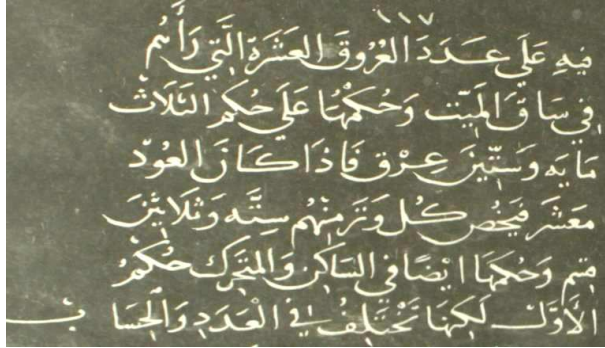 ١١٧
فيه على عدد العروق العشرة التي رأيتم
في ساق الميت وحكمها على حكم الثلاث
مايه وستين عرق فاذا كان العود
معشر فيخص كل وتر منهم سته وثلاثين
قسم وحكمها ايضا في الساكن والمتحرك حكم
الاول لكنها تختلف في العدد والحسا ب